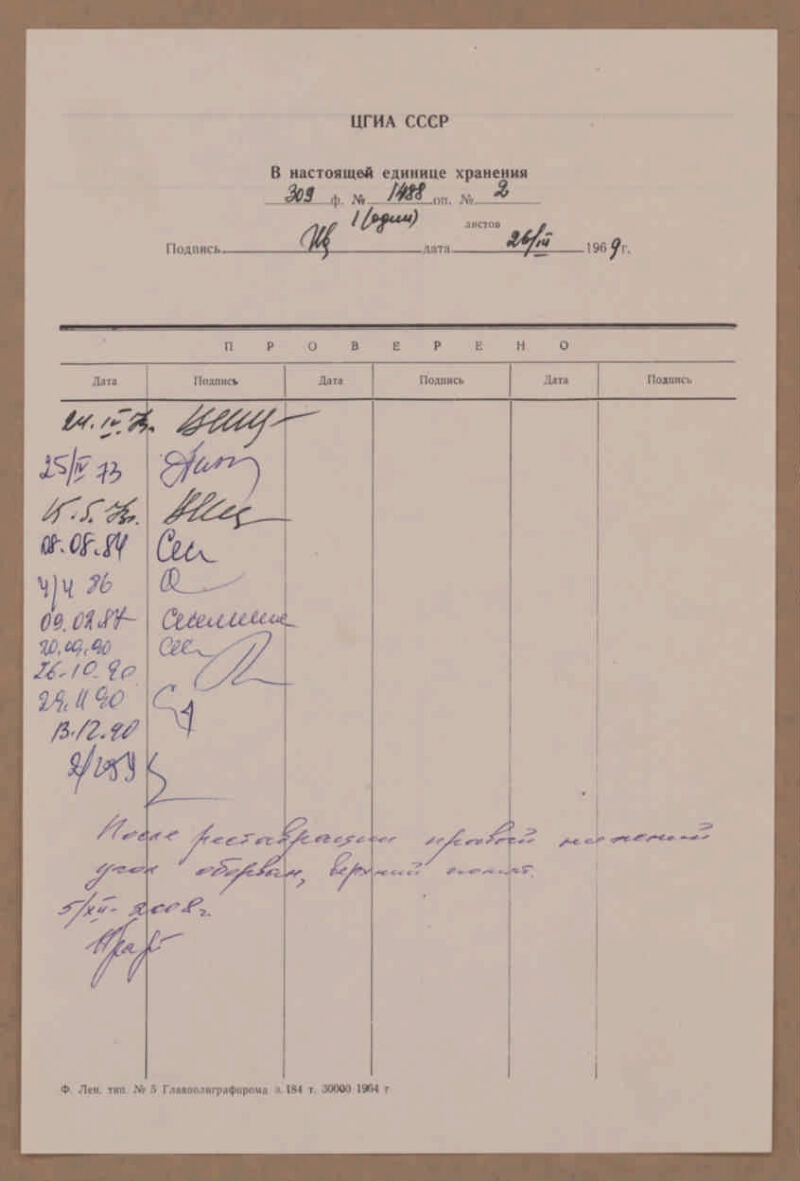 ЦГИА СССР
В настоящей единице хранения
309 ф. № 1488 оп. № 2
1 (один) листов
Подпись дата 26/III 1969 г.
ПРОВЕРЕНО
Дата Подпись Дата Подпись Дата Подпись
25/IV 73
08.08.84 Сен
4/4 86
09.02.87
20.09.90 Сен
26.10.90
29.11.90
13.12.90
После реставрации правый нижний
угол оборван, верхний
5/XII- 2008г.
Ф. Лен. тип. № 5 Главполиграфпрома з. 184 т. 30000 1964 г